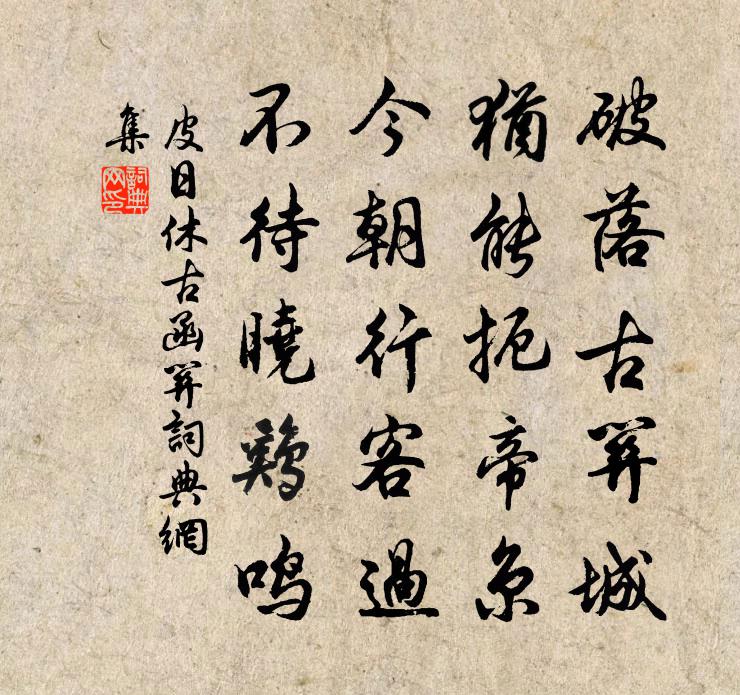 破落古關城
猶能扼帝京
今朝行客過
不待曉鷄鳴
皮日休古函關詞典網
集
詞典網印